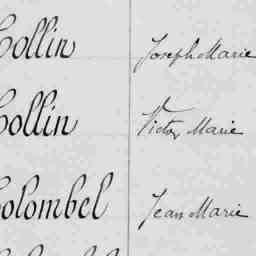 Collin Joseph Marie
Collin Victor Marie
Colombel Jean Marie